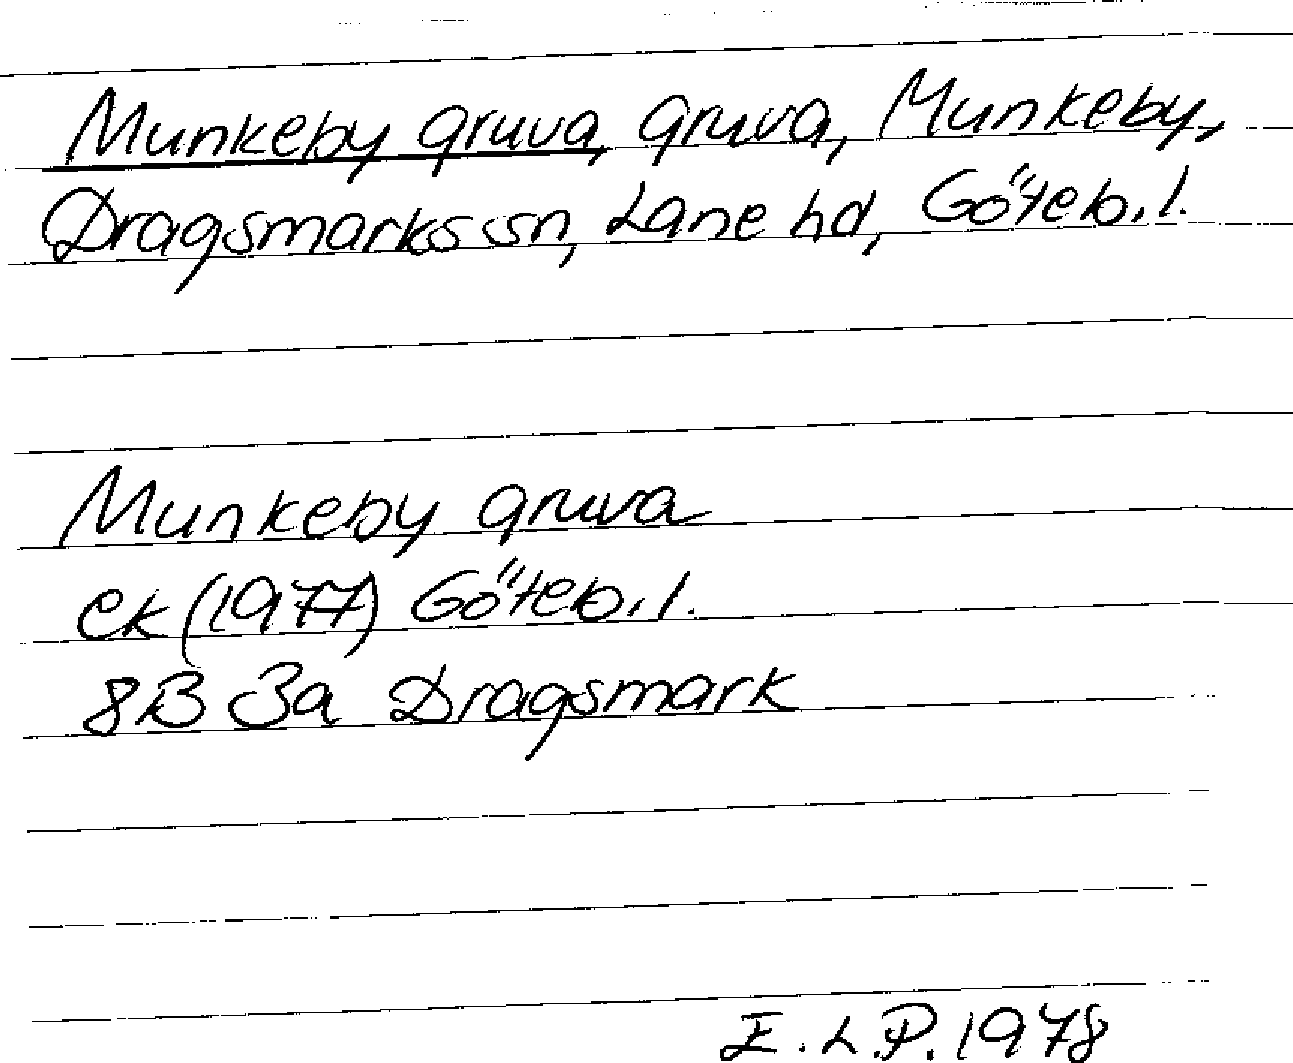 Munkeby gruva, gruva, Munkeby,
Dragsmarks sn, Lane hd, Göteb. l.
Munkeby gruva
ek (1977) Göteb. l.
8B 3a Dragsmark
E. L. P. 1978